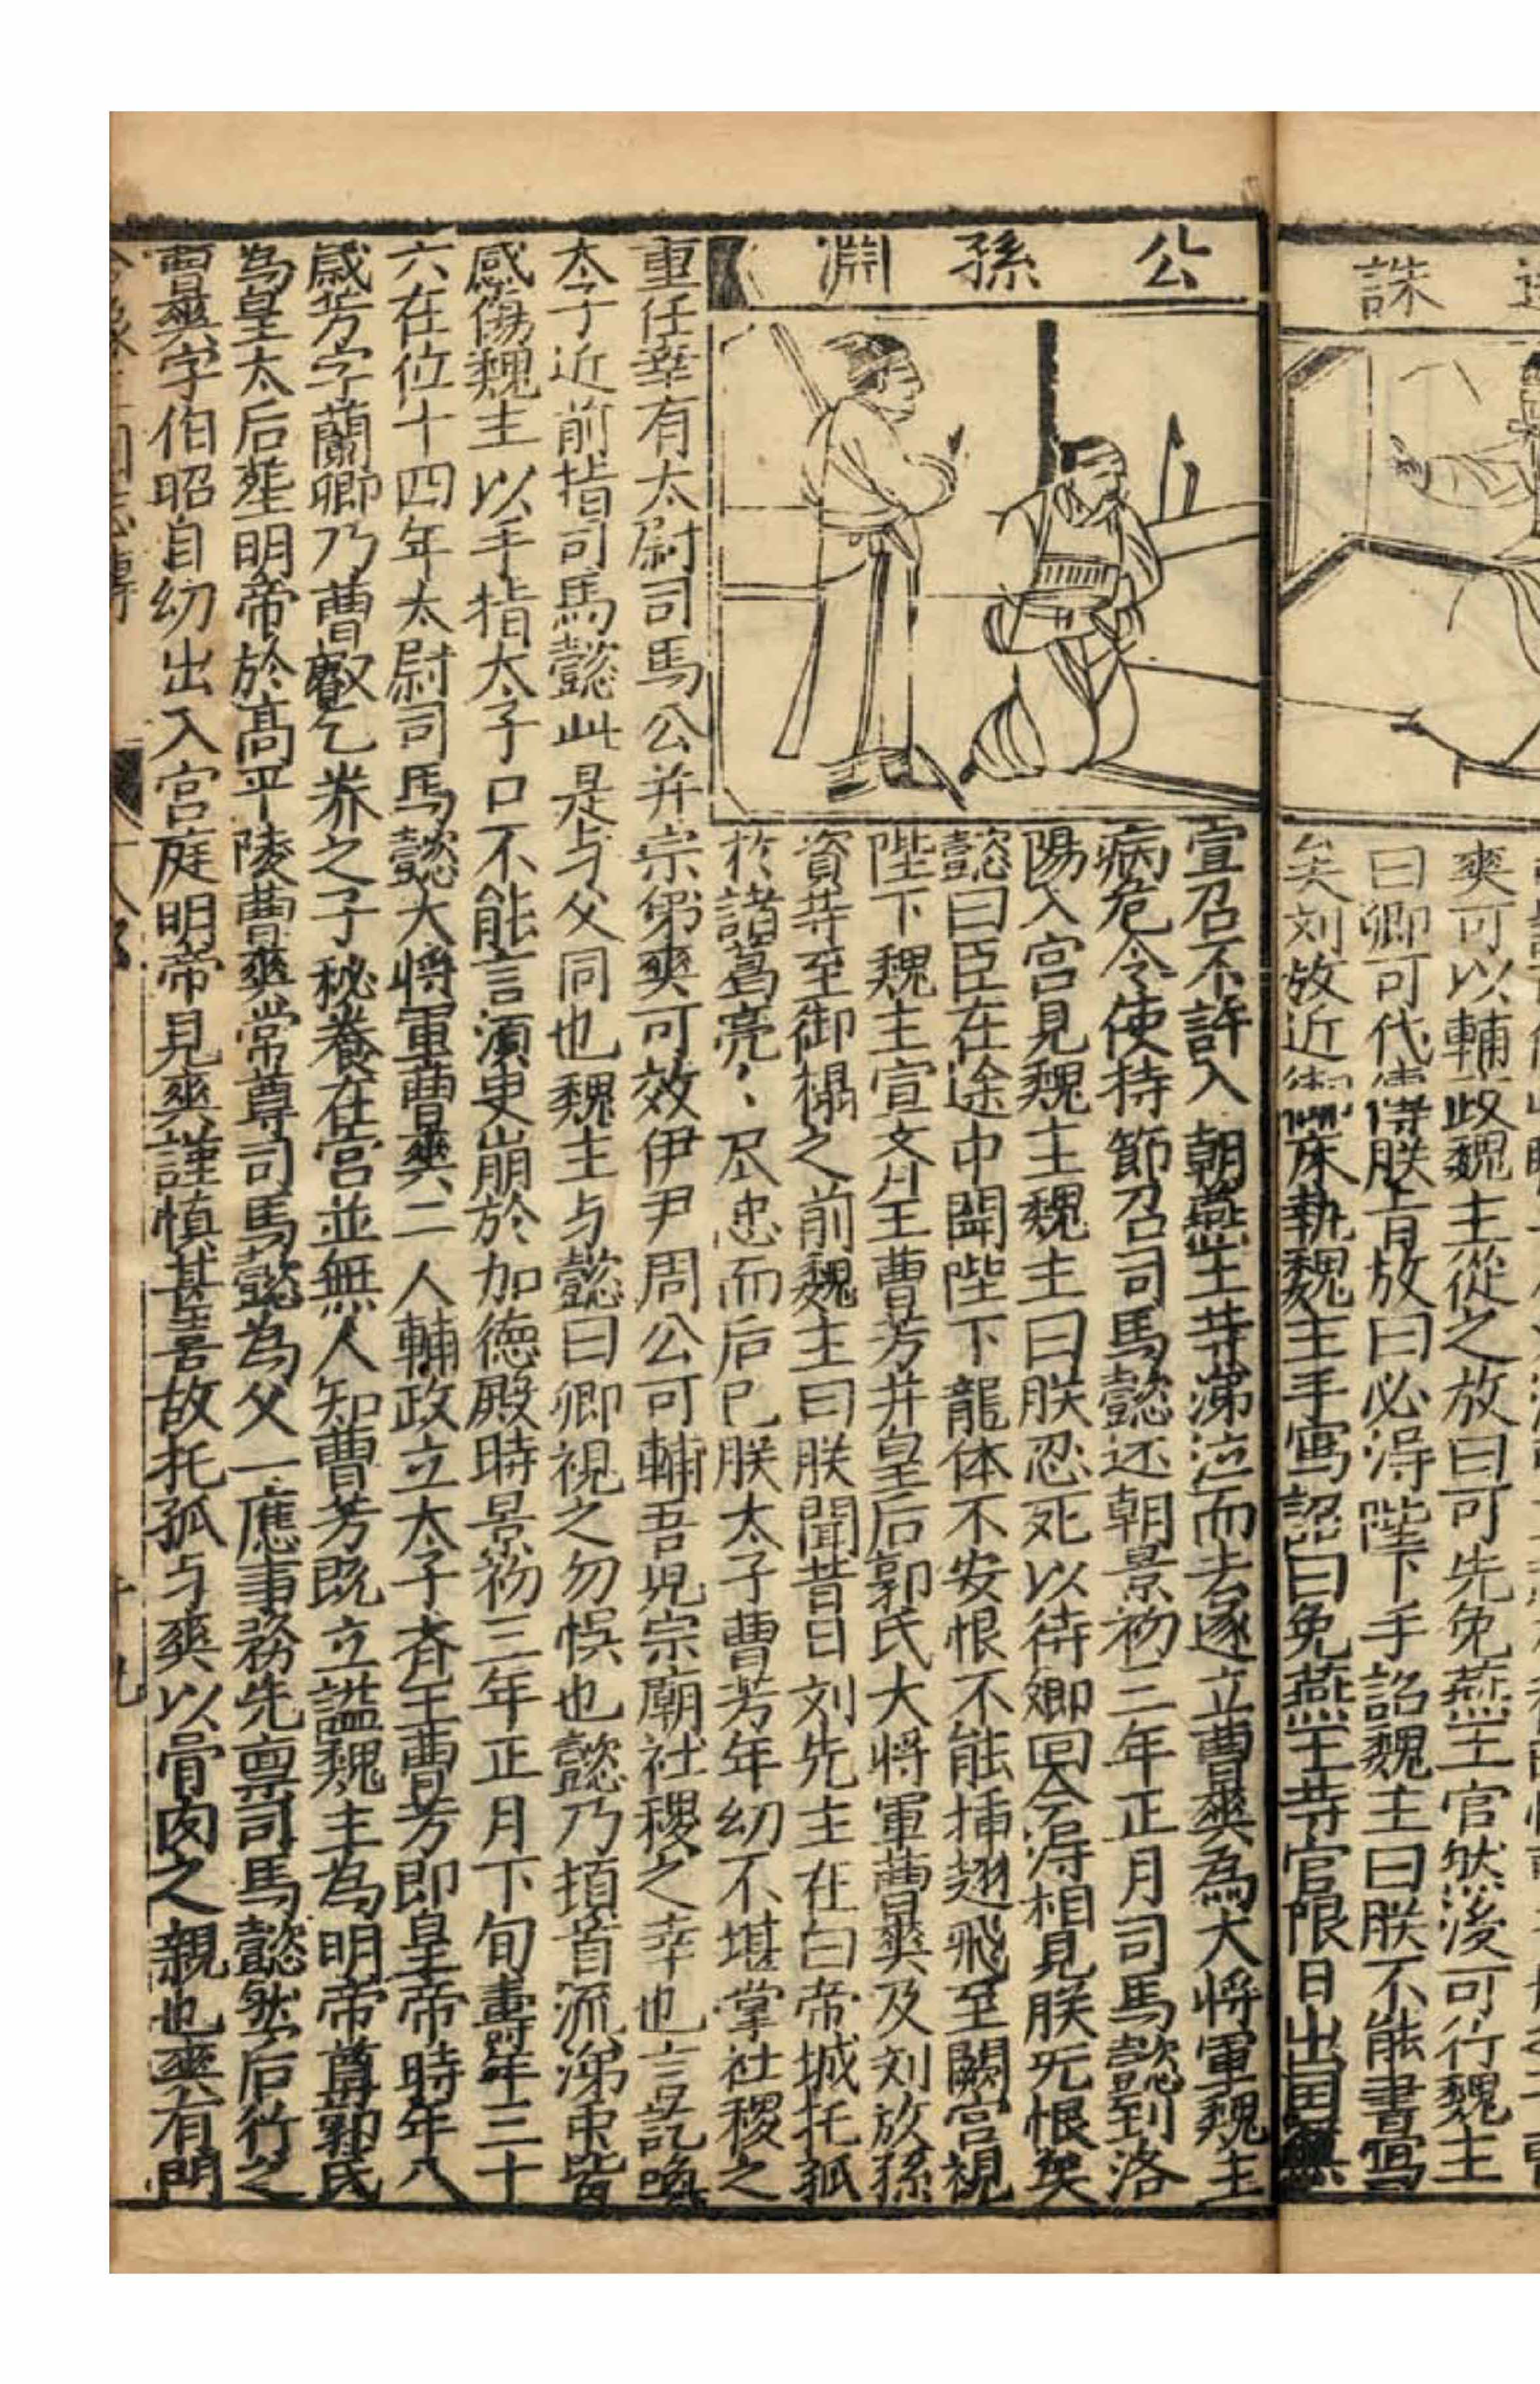 誅
爽可以輔政魏主從之放曰可先免燕王官然後可行魏主
曰卿可代傳朕旨放曰必得陛下手詔魏主曰朕不能書寫
矣刘放近御床執魏主手寫詔曰免燕王䓁官限日出国無
公孫淵
宣召不許入朝燕王䓁涕泣而去遂立曹爽為大将軍魏主
病危令使持節召司馬懿还朝景初三年正月司馬懿到洛
陽入宮見魏主魏主曰朕忍死以待卿回今得相見朕旡恨矣
懿曰臣在途中聞陛下龍体不安恨不能揷翅飛至闕宮視
陛下魏主宣齐王曹芳并皇后郭氏大将軍曹爽及刘放孫
資䓁至御榻之前魏主曰朕聞昔日刘先主在白帝城托孤
於諸葛亮〻尽忠而后已朕太子曹芳年幼不堪掌社稷之
重任幸有太尉司馬公并宗弟爽可效伊尹周公可輔吾児宗廟社稷之幸也言訖喚
太子近前指司馬懿此是与父同也魏主与懿曰卿視之勿悞也懿乃頓首流涕衆皆
感傷魏主以手指太子口不能言湏臾崩於加德殿時景初三年正月下旬壽年三十
六在位十四年太尉司馬懿大将軍曹爽二人輔政立太子齐王曹芳即皇帝時年八
歲芳字蘭卿乃曹叡乞养之子秘養在宮並無人知曹芳既立謚魏主為明帝尊郭氏
為皇太后塟明帝於高平陵曹爽常尊司馬懿為父一應事務先禀司馬懿然后行之
曹爽字伯昭自幼出入宮庭明帝見爽謹慎甚喜故托孤与爽以骨肉之親也爽有門